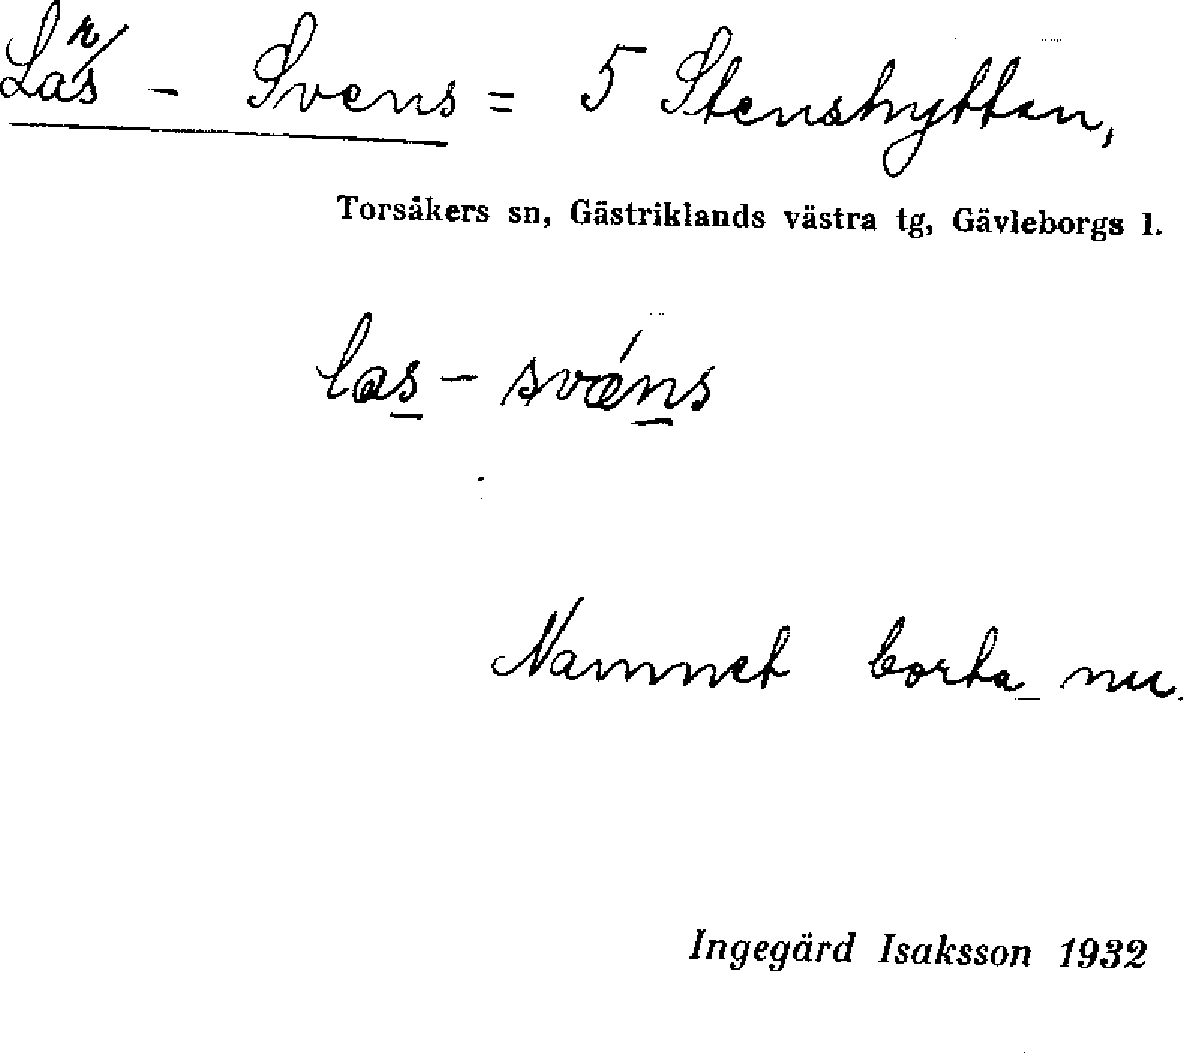 Lars - Svens = 5 Stenshyttan,
Torsåkers sn, Gästriklands västra tg, Gävleborgs l.
las - svǽns
Namnet borta nu.
Ingegärd Isaksson 1932